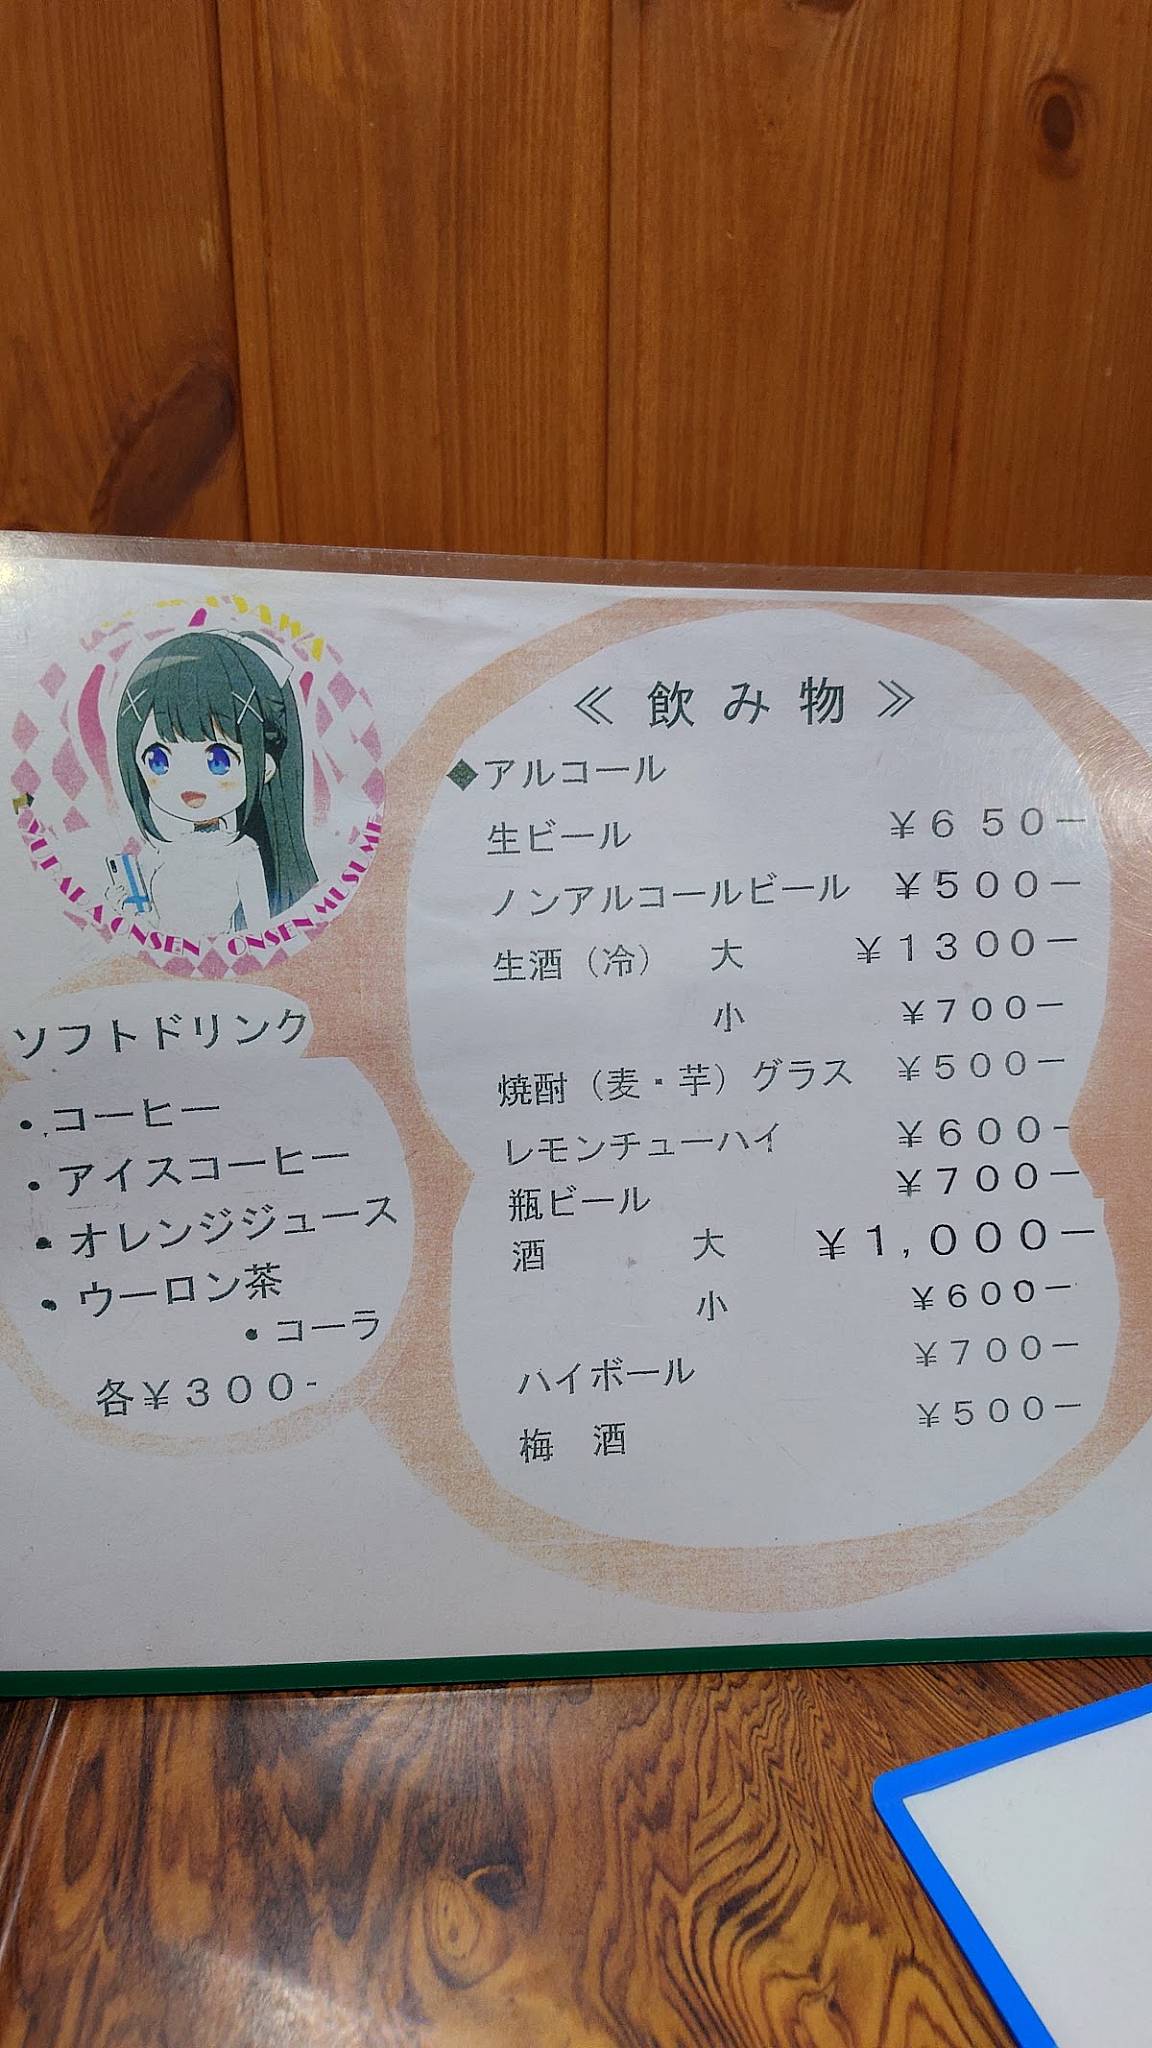 YUBARA ONSEN ONSEN MUSUME
≪ 飲み物 ≫
◆アルコール
生ビール ¥650－
ノンアルコールビール ¥500－
生酒（冷） 大 ¥1300－
小 ¥700－
焼酎（麦・芋）グラス ¥500－
レモンチューハイ ¥600－
瓶ビール ¥700－
酒 大 ¥1,000－
小 ¥600－
ハイボール ¥700－
梅 酒 ¥500－
ソフトドリンク
・コーヒー
・アイスコーヒー
・オレンジジュース
・ウーロン茶
・コーラ
各¥300-